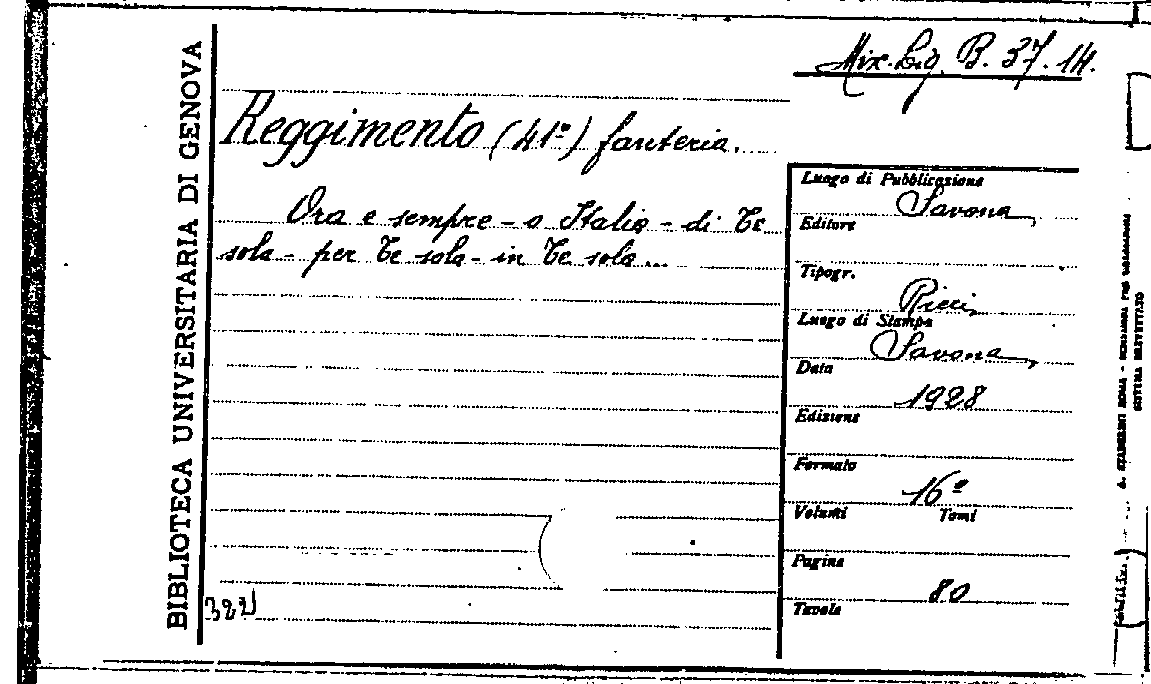 BIBLIOTECA UNIVERSITARIA DI GENOVA
Mix. Lig. B. 37. 14.
Reggimento (41º) fanteria.
Ora e sempre - o Italia - di Te
sola - per Te sola - in Te sola...
Luogo di Pubblicazione
Savona
Editore
Tipogr.
Ricci
Luogo di Stampa
Savona
Data
1928
Edizione
Formato
16º
Volumi Tomi
Pagine
80
Tavole
A. STADERINI ROMA -
SISTEMA BREVETTATO